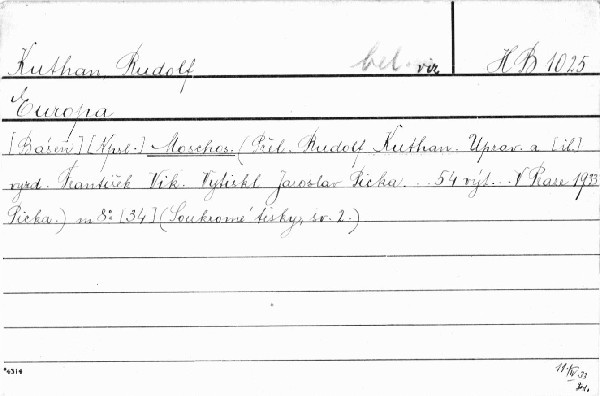 Kuthan Rudolf bel. vir HB 1025
Europa
[Báseň] [Npsl.] Moschos. (Přel. Rudolf Kuthan. Uprav. a [il.]
vyzd. František Vik. Vytiskl Jaroslav Picka. .. 54 výt... V Praze 1933
Picka.) m 8° [34] (Soukromé tisky, sv. 2.)
*4314
11/IV 33